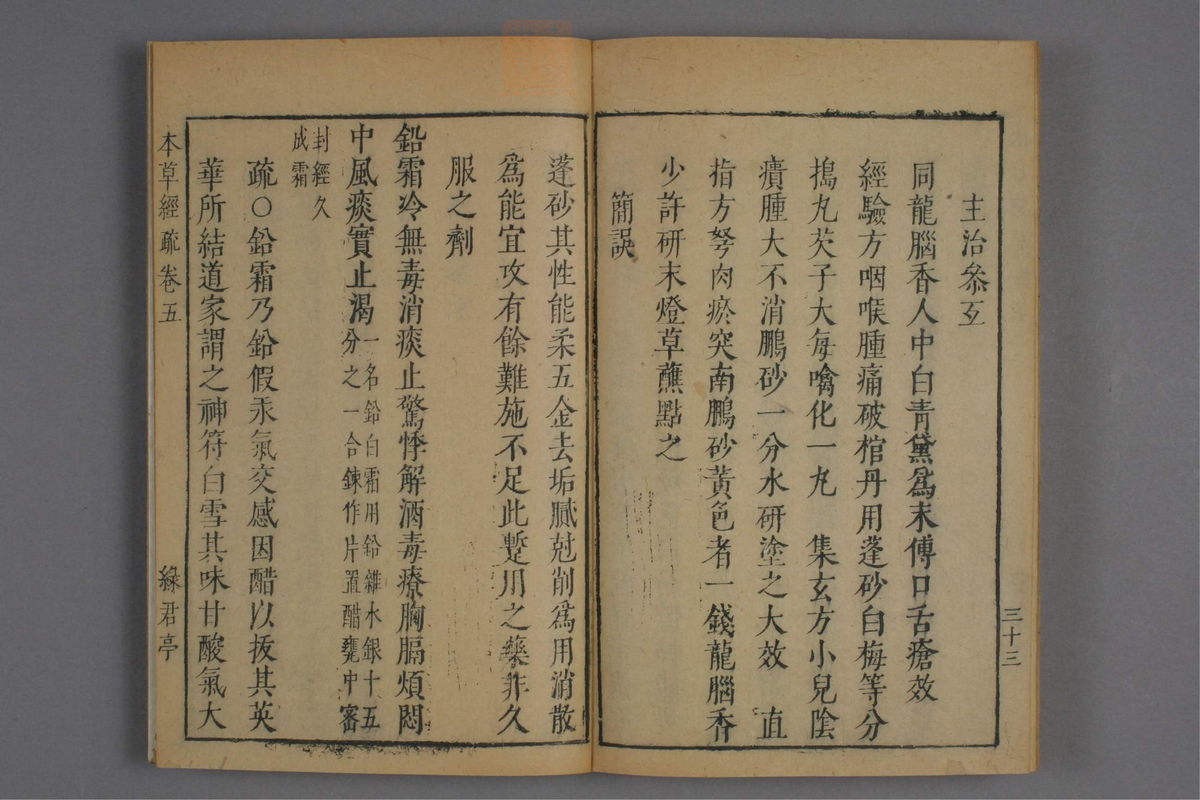 主治參互
同龍腦香人中白青黛爲末傅口舌瘡效
經驗方咽喉腫痛破棺丹用蓬砂白梅等分
搗丸芡子大每噙化一丸　集玄方小兒陰
㿉腫大不消鵬砂一分水研塗之大效　直
指方弩肉瘀突南鵬砂黃色者一錢龍腦香
少許研末燈草蘸點之
簡誤
三十三
蓬砂其性能柔五金去垢膩尅削爲用消散
爲能宜攻有餘難施不足此蹔用之藥非久
服之劑
鉛霜冷無毒消痰止驚悸解酒毒療胸膈煩悶
中風痰實止渴一名鉛白霜用鉛雜水銀十五
分之一合鍊作片置醋甕中密
封經久
成霜
疏○鉛霜乃鉛假汞氣交感因醋以抜其英
華所結道家謂之神符白雪其味甘酸氣大
本草經疏卷五
綠君亭